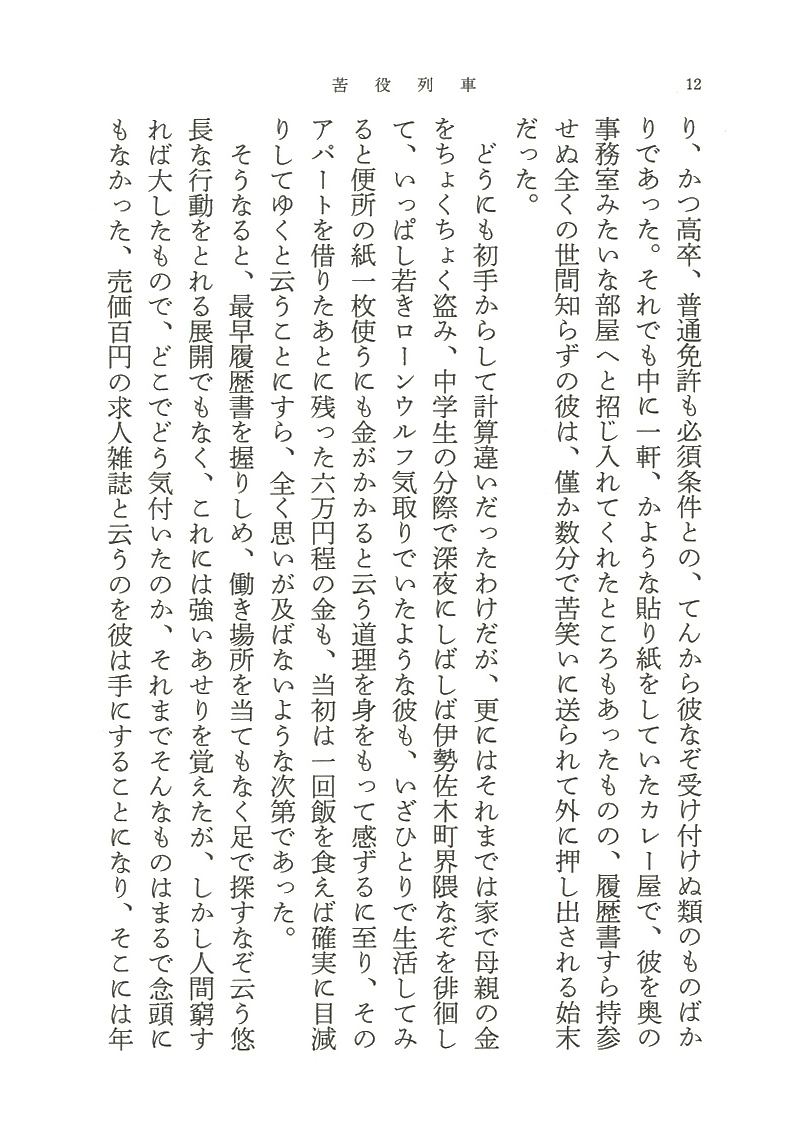 12
苦役列車
り、かつ高卒、普通免許も必須条件との、てんから彼なぞ受け付けぬ類のものばか
りであった。それでも中に一軒、かような貼り紙をしていたカレー屋で、彼を奥の
事務室みたいな部屋へと招じ入れてくれたところもあったものの、履歴書すら持参
せぬ全くの世間知らずの彼は、僅か数分で苦笑いに送られて外に押し出される始末
だった。
どうにも初手からして計算違いだったわけだが、更にはそれまでは家で母親の金
をちょくちょく盗み、中学生の分際で深夜にしばしば伊勢佐木町界隈なぞを徘徊し
て、いっぱし若きローンウルフ気取りでいたような彼も、いざひとりで生活してみ
ると便所の紙一枚使うにも金がかかると云う道理を身をもって感ずるに至り、その
アパートを借りたあとに残った六万円程の金も、当初は一回飯を食えば確実に目減
りしてゆくと云うことにすら、全く思いが及ばないような次第であった。
そうなると、最早履歴書を握りしめ、働き場所を当てもなく足で探すなぞ云う悠
長な行動をとれる展開でもなく、これには強いあせりを覚えたが、しかし人間窮す
れば大したもので、どこでどう気付いたのか、それまでそんなものはまるで念頭に
もなかった、売価百円の求人雑誌と云うのを彼は手にすることになり、そこには年